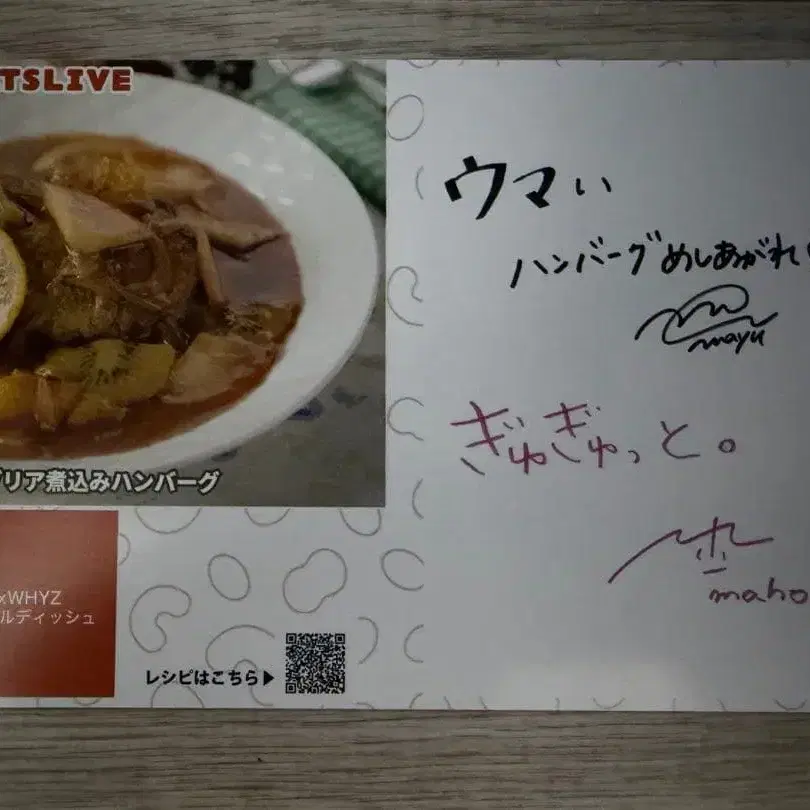 TSLIVE
ウマい
ハンバーグめしあがれ
mayu
ぎゅぎゅっと。
maho
リア煮込みハンバーグ
xWHYZ
ルディッシュ
レシピはこちら▶